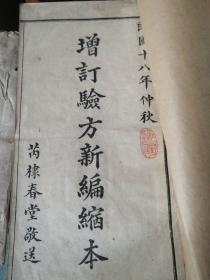 民國十八年仲秋
增訂驗方新編縮本
芮棣春堂敬送